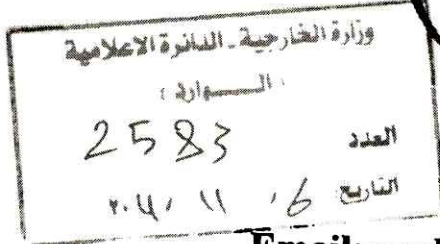 وزارة الخارجية - الدائرة الاعلامية
الـــوارد
العدد 2583
التاريخ
Email